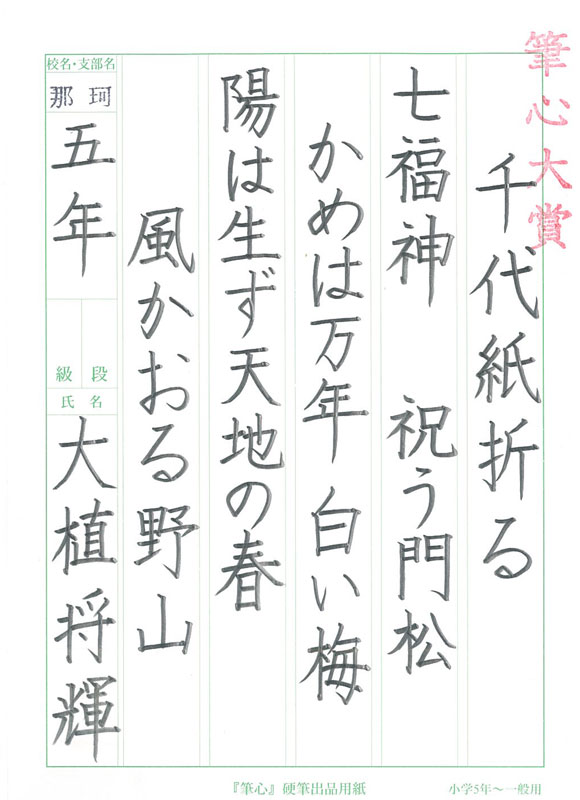 筆心大賞
千代紙折る
七福神 祝う門松
かめは万年 白い梅
陽は生ず天地の春
風かおる野山
校名・支部名
那珂
五年
級 段
氏名
大植将輝
『筆心』硬筆出品用紙
小学5年〜一般用